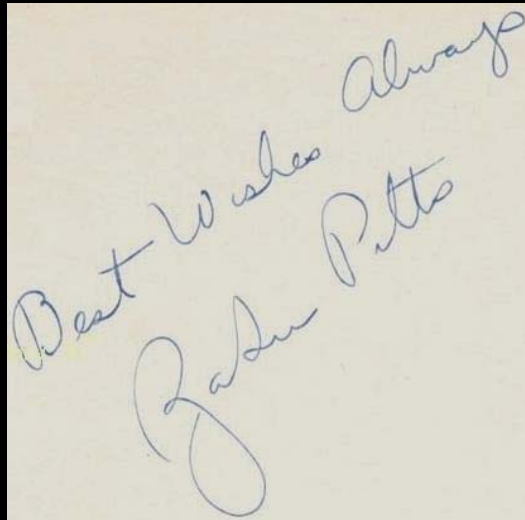 Best Wishes Always
ZaSu Pitts